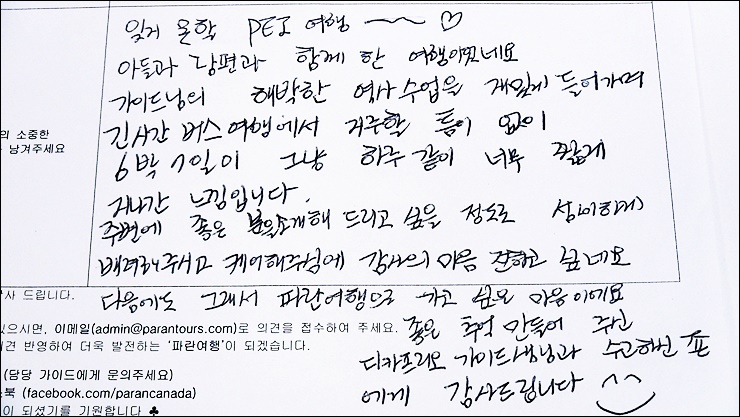 잊지 못할 PEI 여행 ~~ ♡
아들과 남편과 함께 한 여행이었네요
가이드님의 해박한 역사 수업을 재밌게 들어가며
긴시간 버스여행에서 지루할 틈이 없이
6박 7일이 그냥 하루 같이 너무 짧게
지나간 느낌입니다.
주변에 좋은 분을 소개해 드리고 싶을 정도로
배려해주시고 케어해주심에 감사의 마음 전하고 싶네요
다음에도 그래서 파란여행으로 가고 싶은 마음이에요
좋은 추억 만들어 주신
디카프리오 가이드님과 수고하신
에게 감사드립니다
의 소중한
남겨주세요
사 드립니다.
있으시면, 이메일(admin@parantours.com)로 의견을 접수하여 주세요.
견 반영하여 더욱 발전하는 '파란여행'이 되겠습니다.
(담당 가이드에게 문의주세요)
북 (facebook.com/parancanada)
이 되셨기를 기원합니다 ♣